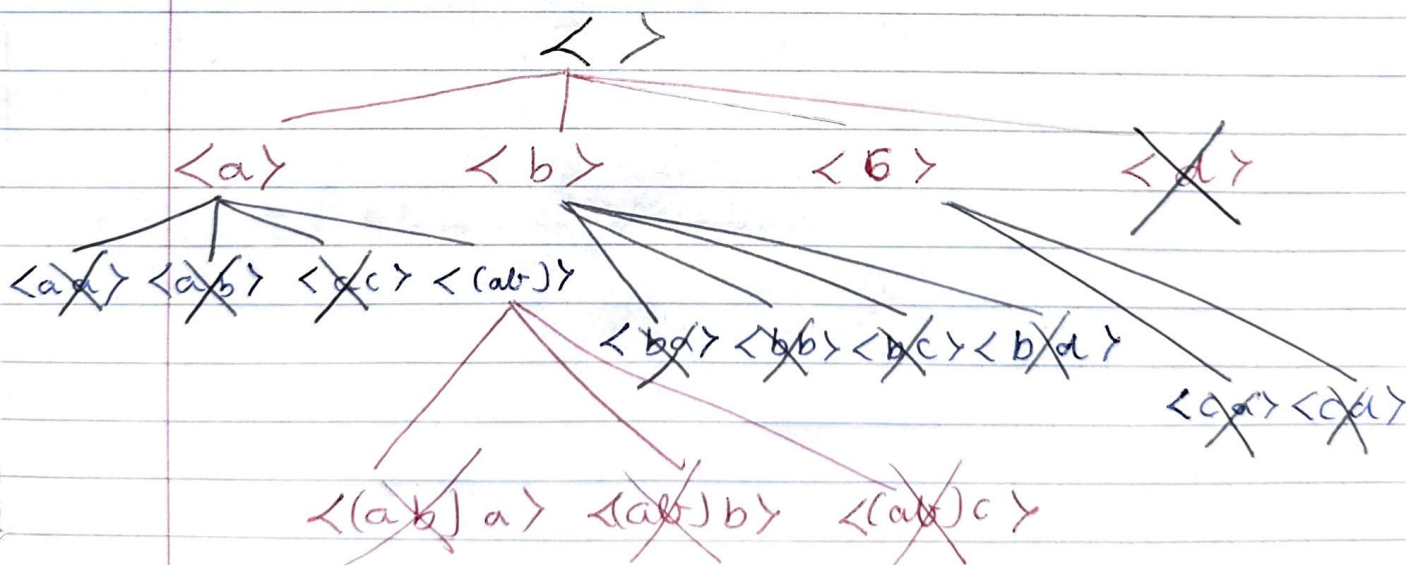 < >
<a> <b> <6> <d>
<aa> <ab> <ac> <(ab)>
<ba> <bb> <bc> <bd>
<ca> <cd>
<(ab)a> <(ab)b> <(ab)c>